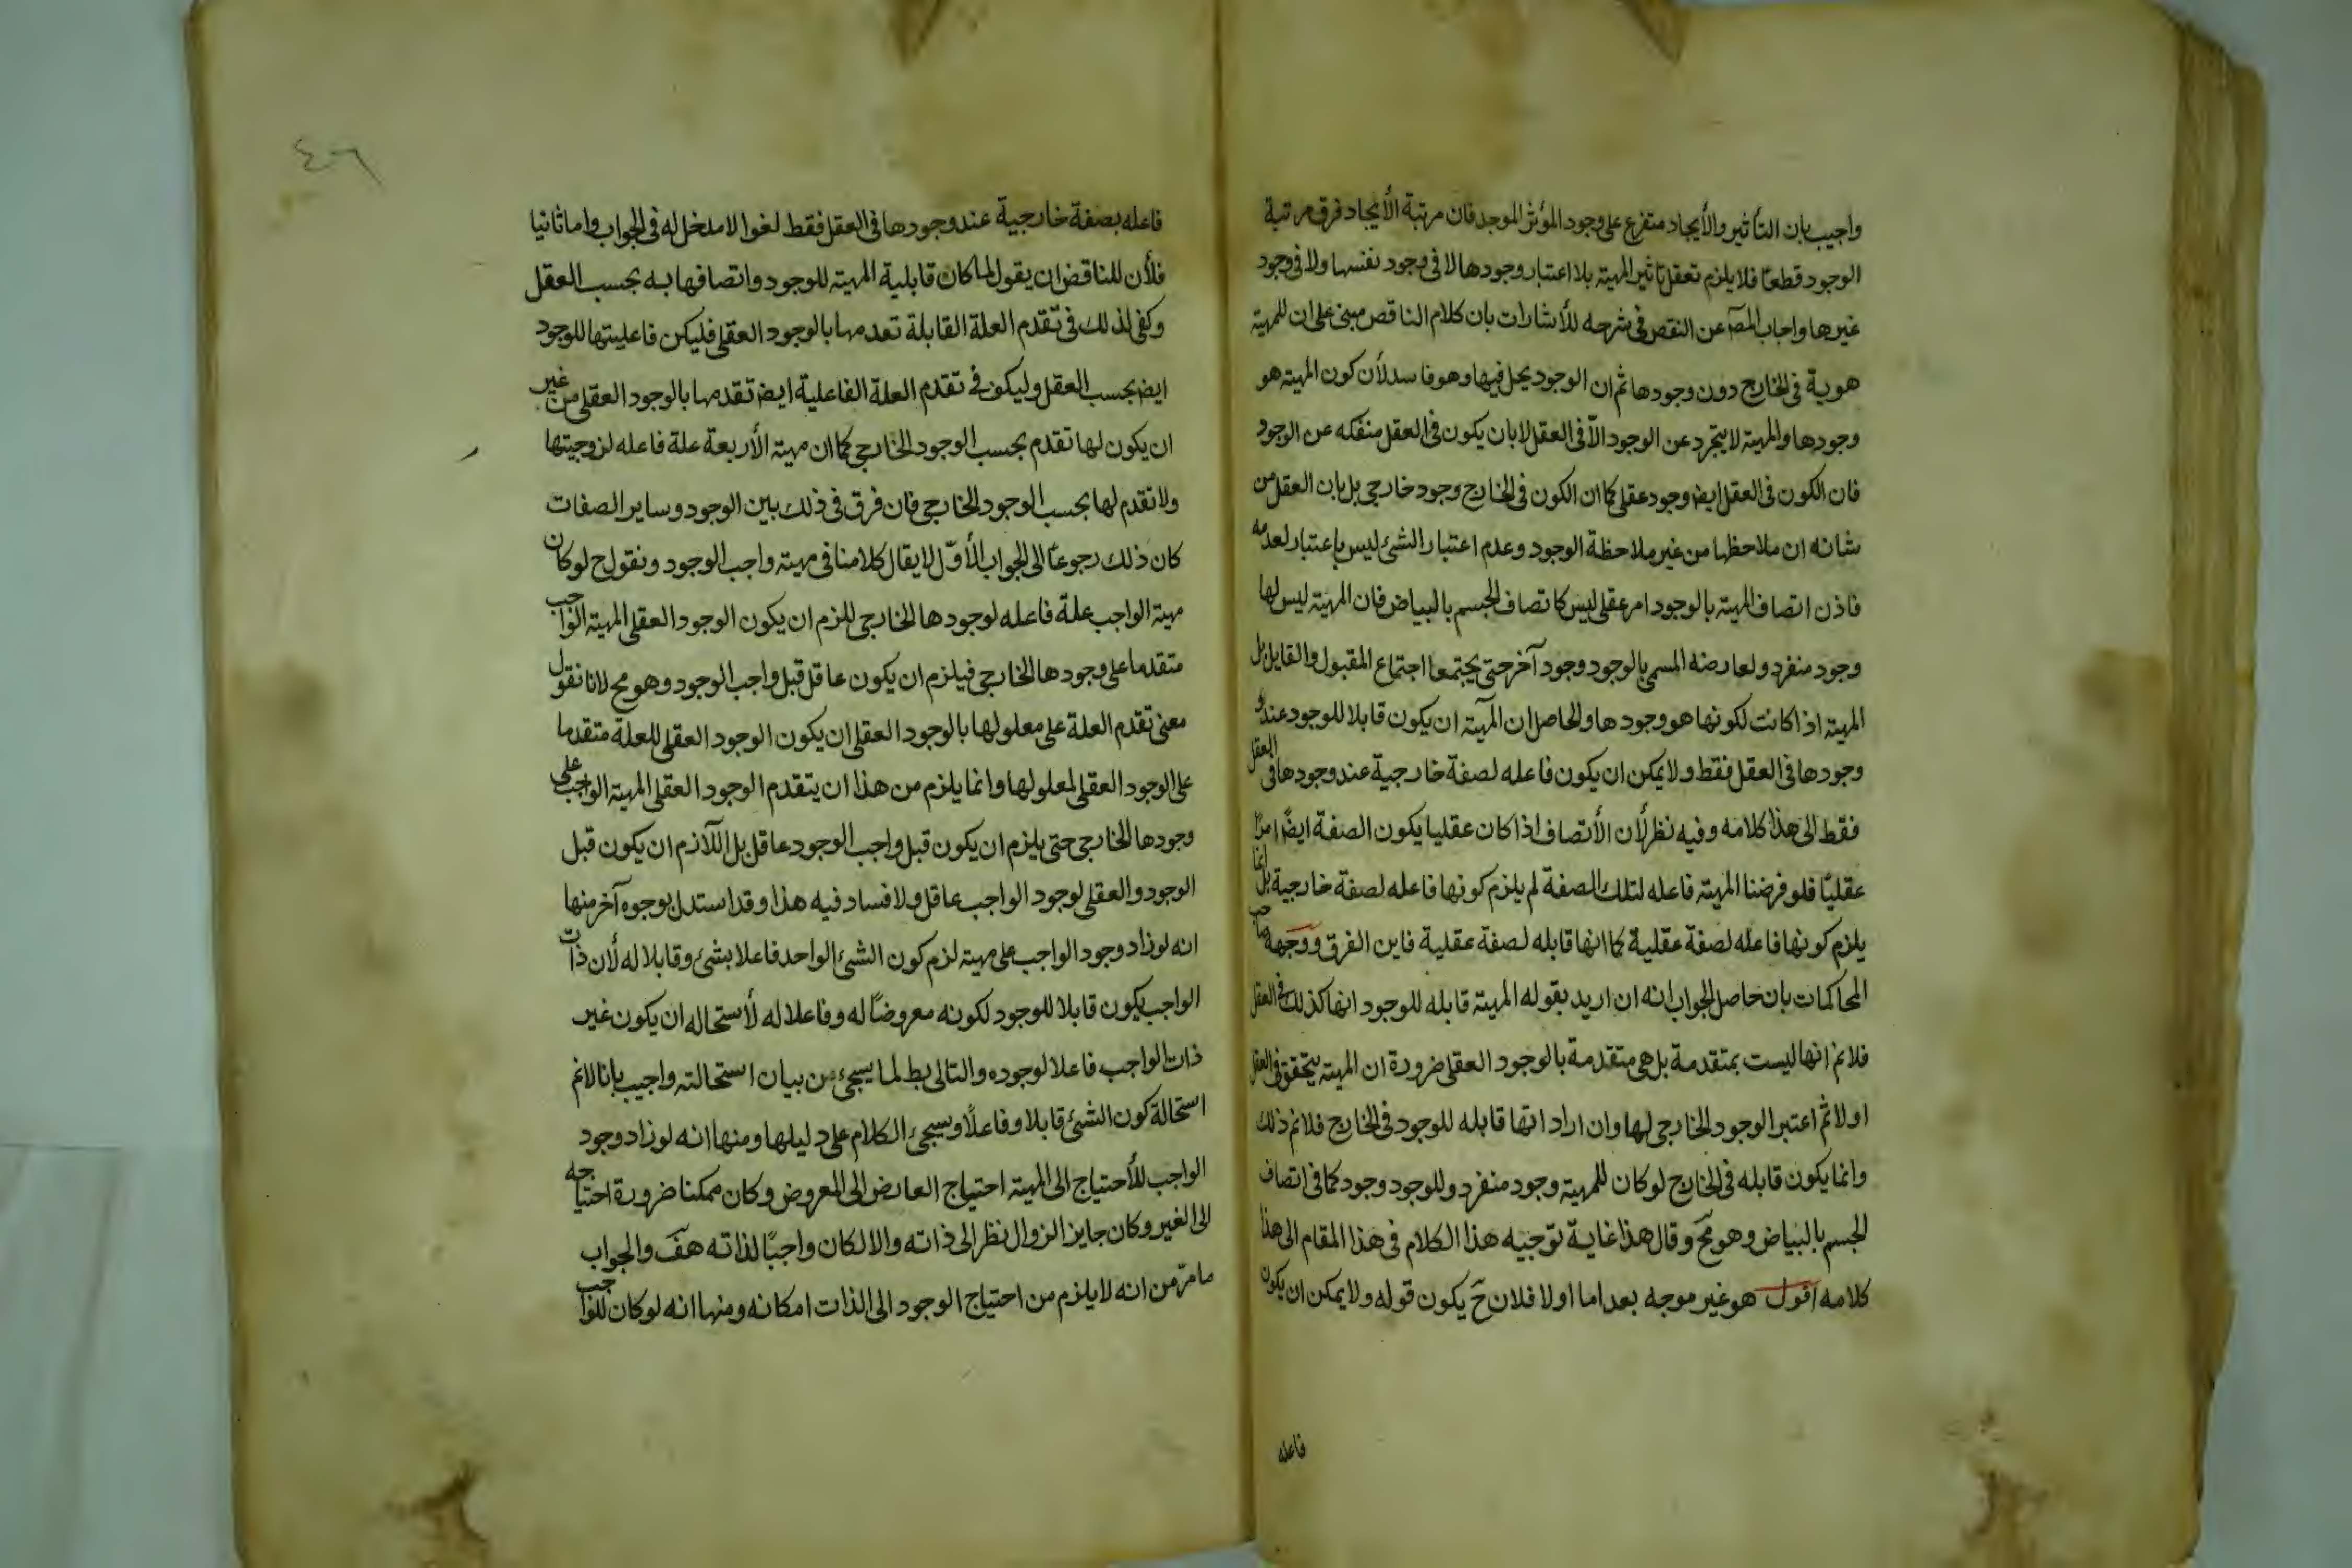 واجيب بان التأثير والأيجاد متفرع على وجود المؤثر الموجد فان مرتبة الأيجاد فرق مرتبة
الوجود قطعا فلا يلزم تعقل تاثير المهيته بلا اعتبار وجودها لا فى وجود نفسها ولا فى وجود
غيرها واجاب المصَ عن النقض فى شرحه للأشارات بان كلام الناقص مبنى على ان للمهيته
هوية فى الخارج دون وجودها ثم ان الوجود يحل فيها وهو فاسد لأن كون المهيته هو
وجودها والمهيته لا يتجرد عن الوجود الاّ فى العقل لا بان يكون فى العقل منفكه عن الوجود
فان الكون فى العقل ايضَ وجود عقلى كما ان الكون فى الخارج وجود خارجى بل بان العقل من
شانه ان ملاحظها من غير ملاحظة الوجود وعدم اعتبار الشئ ليس باعتبار لعدمه
فاذن اتصاف المهيته بالوجود امر عقلى ليس كاتصاف الجسم بالبياض فان المهيته ليس لها
وجود منفرد ولعارضه المسمى بالوجود وجود آخر حتى يجتمعا اجتماع المقبول والقابل بل
المهيته اذا كانت لكونها هو وجودها والحاصل ان المهيته ان يكون قابلا للوجود عند
وجودها فى العقل فقط ولا يمكن ان يكون فاعله لصفة خارجية عند وجودها فى العقل
فقط الى هذا كلامه وفيه نظر لأن الأتصاف اذا كان عقليا يكون الصفة ايضًا امرًا
عقليًا فلو فرضنا المهيته فاعله لتلك الصفة لم يلزم كونها فاعله لصفة خارجية بل انما
يلزم كونها فاعله لصفة عقلية كما انها قابله لصفة عقلية فاين الفرق ووجهه صاحب
المحاكمات بان حاصل الجواب انه ان اريد بقوله المهيته قابله للوجود انها كذلك فى العقل
فلانم انها ليست بمتقدمة بل هى متقدمة بالوجود العقلى ضرورة ان المهيته يتحقق فى العقل
اولا ثم اعتبر الوجود الخارجى لها وان اراد انها قابله للوجود فى الخارج فلانم ذلك
وانما يكون قابله فى الخارج لو كان للمهيته وجود منفرد وللوجود وجود كما فى اتصاف
الجسم بالبياض وهو مح وقال هذا غاية توجيه هذا الكلام فى هذا المقام الى هذا
كلامه اقول هو غير موجه بعد اما اولا فلان ح يكون قوله ولا يمكن ان يكون
فاعله
٤٦
فاعله بصفة خارجية عند وجودها فى العقل فقط لغوا لا مدخل له فى الجواب واما ثانيا
فلأن للناقض ان يقول لما كان قابلية المهيته للوجود واتصافها به بحسب العقل
وكفى لذلك فى تقدم العلة القابلة تعدمها بالوجود العقلى فليكن فاعليتها للوجود
ايضَ بحسب العقل وليكون فى تقدم العلة الفاعلية ايضَ تقدمها بالوجود العقلى من غير
ان يكون لها تقدم بحسب الوجود الخارجى كما ان مهيته الأربعة علة فاعله لزوجيتها
ولا تقدم لها بحسب الوجود الخارجى فان فرق فى ذلك بين الوجود وساير الصفات
كان ذلك رجوعًا الى الجواب الأوّل لا يقال كلامنا فى مهيته واجب الوجود ونقول ح لو كان
مهيته الواجب علة فاعله لوجودها الخارجى للزم ان يكون الوجود العقلى المهيته الواجب
متقدما على وجودها الخارجى فيلزم ان يكون عاقل قبل واجب الوجود وهو مح لانا نقول
معنى تقدم العلة على معلولها بالوجود العقلى ان يكون الوجود العقلى للعلة متقدما
على الوجود العقلى لمعلولها وانما يلزم من هذا ان يتقدم الوجود العقلى المهيته الواجب على
وجودها الخارجى حتى يلزم ان يكون قبل واجب الوجود عاقل بل اللآزم ان يكون قبل
الوجود والعقلى لوجود الواجب عاقل ولا فساد فيه هذا وقد استدل بوجوه آخر منها
انه لو زاد وجود الواجب على مهيته لزم كون الشئ الواحد فاعلا بشئ وقابلا له لأن ذات
الواجب يكون قابلا للوجود لكونه معروضًا له وفاعلا له لأستحاله ان يكون غير
ذات الواجب فاعلا لوجوده والتالى بط لما يسجىء من بيان استحالته واجيب بانا لانم
استحالة كون الشئ قابلا وفاعلًا وسيجئ الكلام على دليلها ومنها انه لو زاد وجود
الواجب للأحتياج الى المهيته احتياج العارض الى المعروض وكان ممكنا ضرورة احتياجه
الى الغير وكان جايز الزوال نظر الى ذاته والا لكان واجبًا لذاته هفَ والجواب
ما مرّ من انه لا يلزم من احتياج الوجود الى الذات امكانه ومنها انه لو كان للواجب